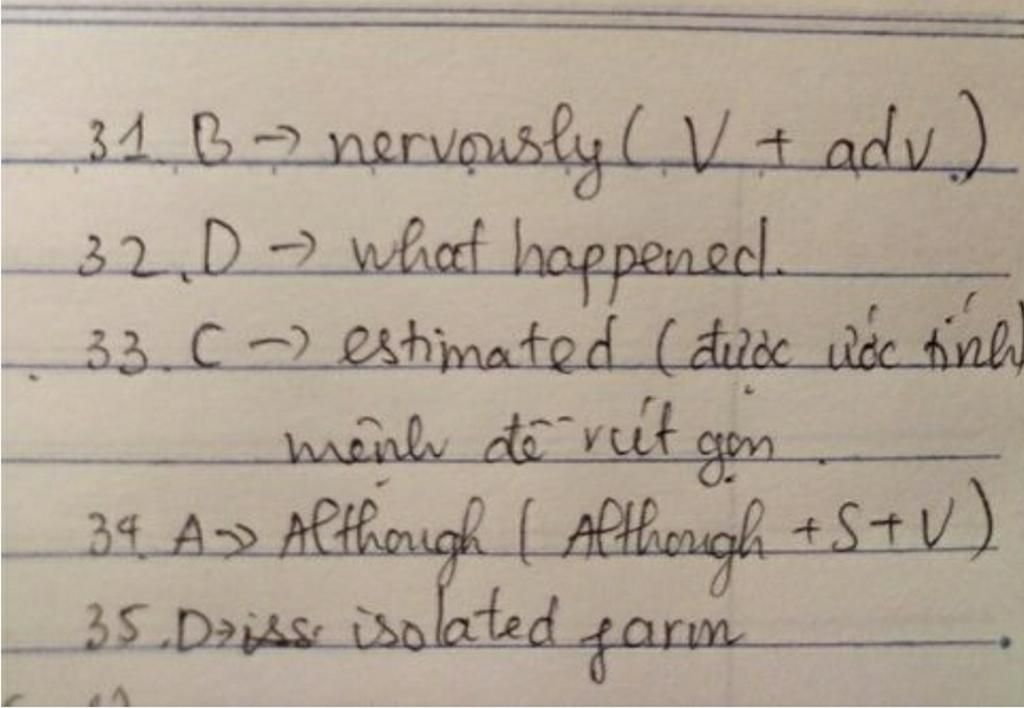 31. B → nervously ( V + adv )
32. D → what happened.
33. C → estimated ( được ước tính)
mệnh đề rút gọn .
34. A → Although ( Although + S + V )
35. D → isolated farm